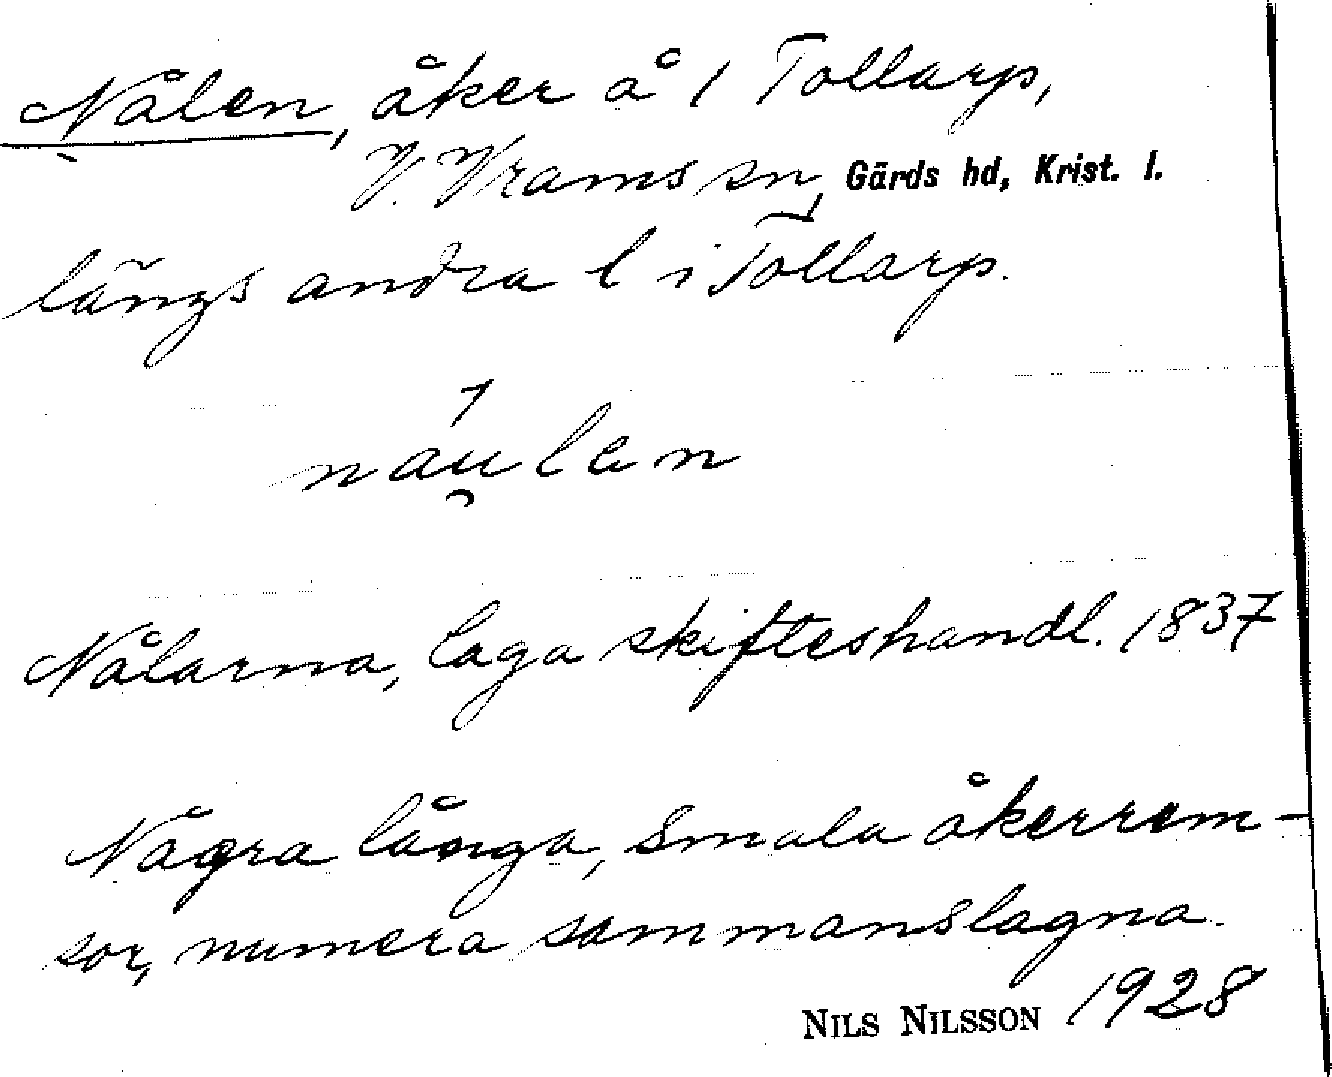 Nålen, åker å 1 Tollarp,
V. Vrams sn, Gärds hd, Krist. l.
längs andra l i Tollarp.
náu̯len
Nålarna, laga skifteshandl. 1837
Några långa, smala åkerrem-
sor, numera sammanslagna.
NILS NILSSON 1928